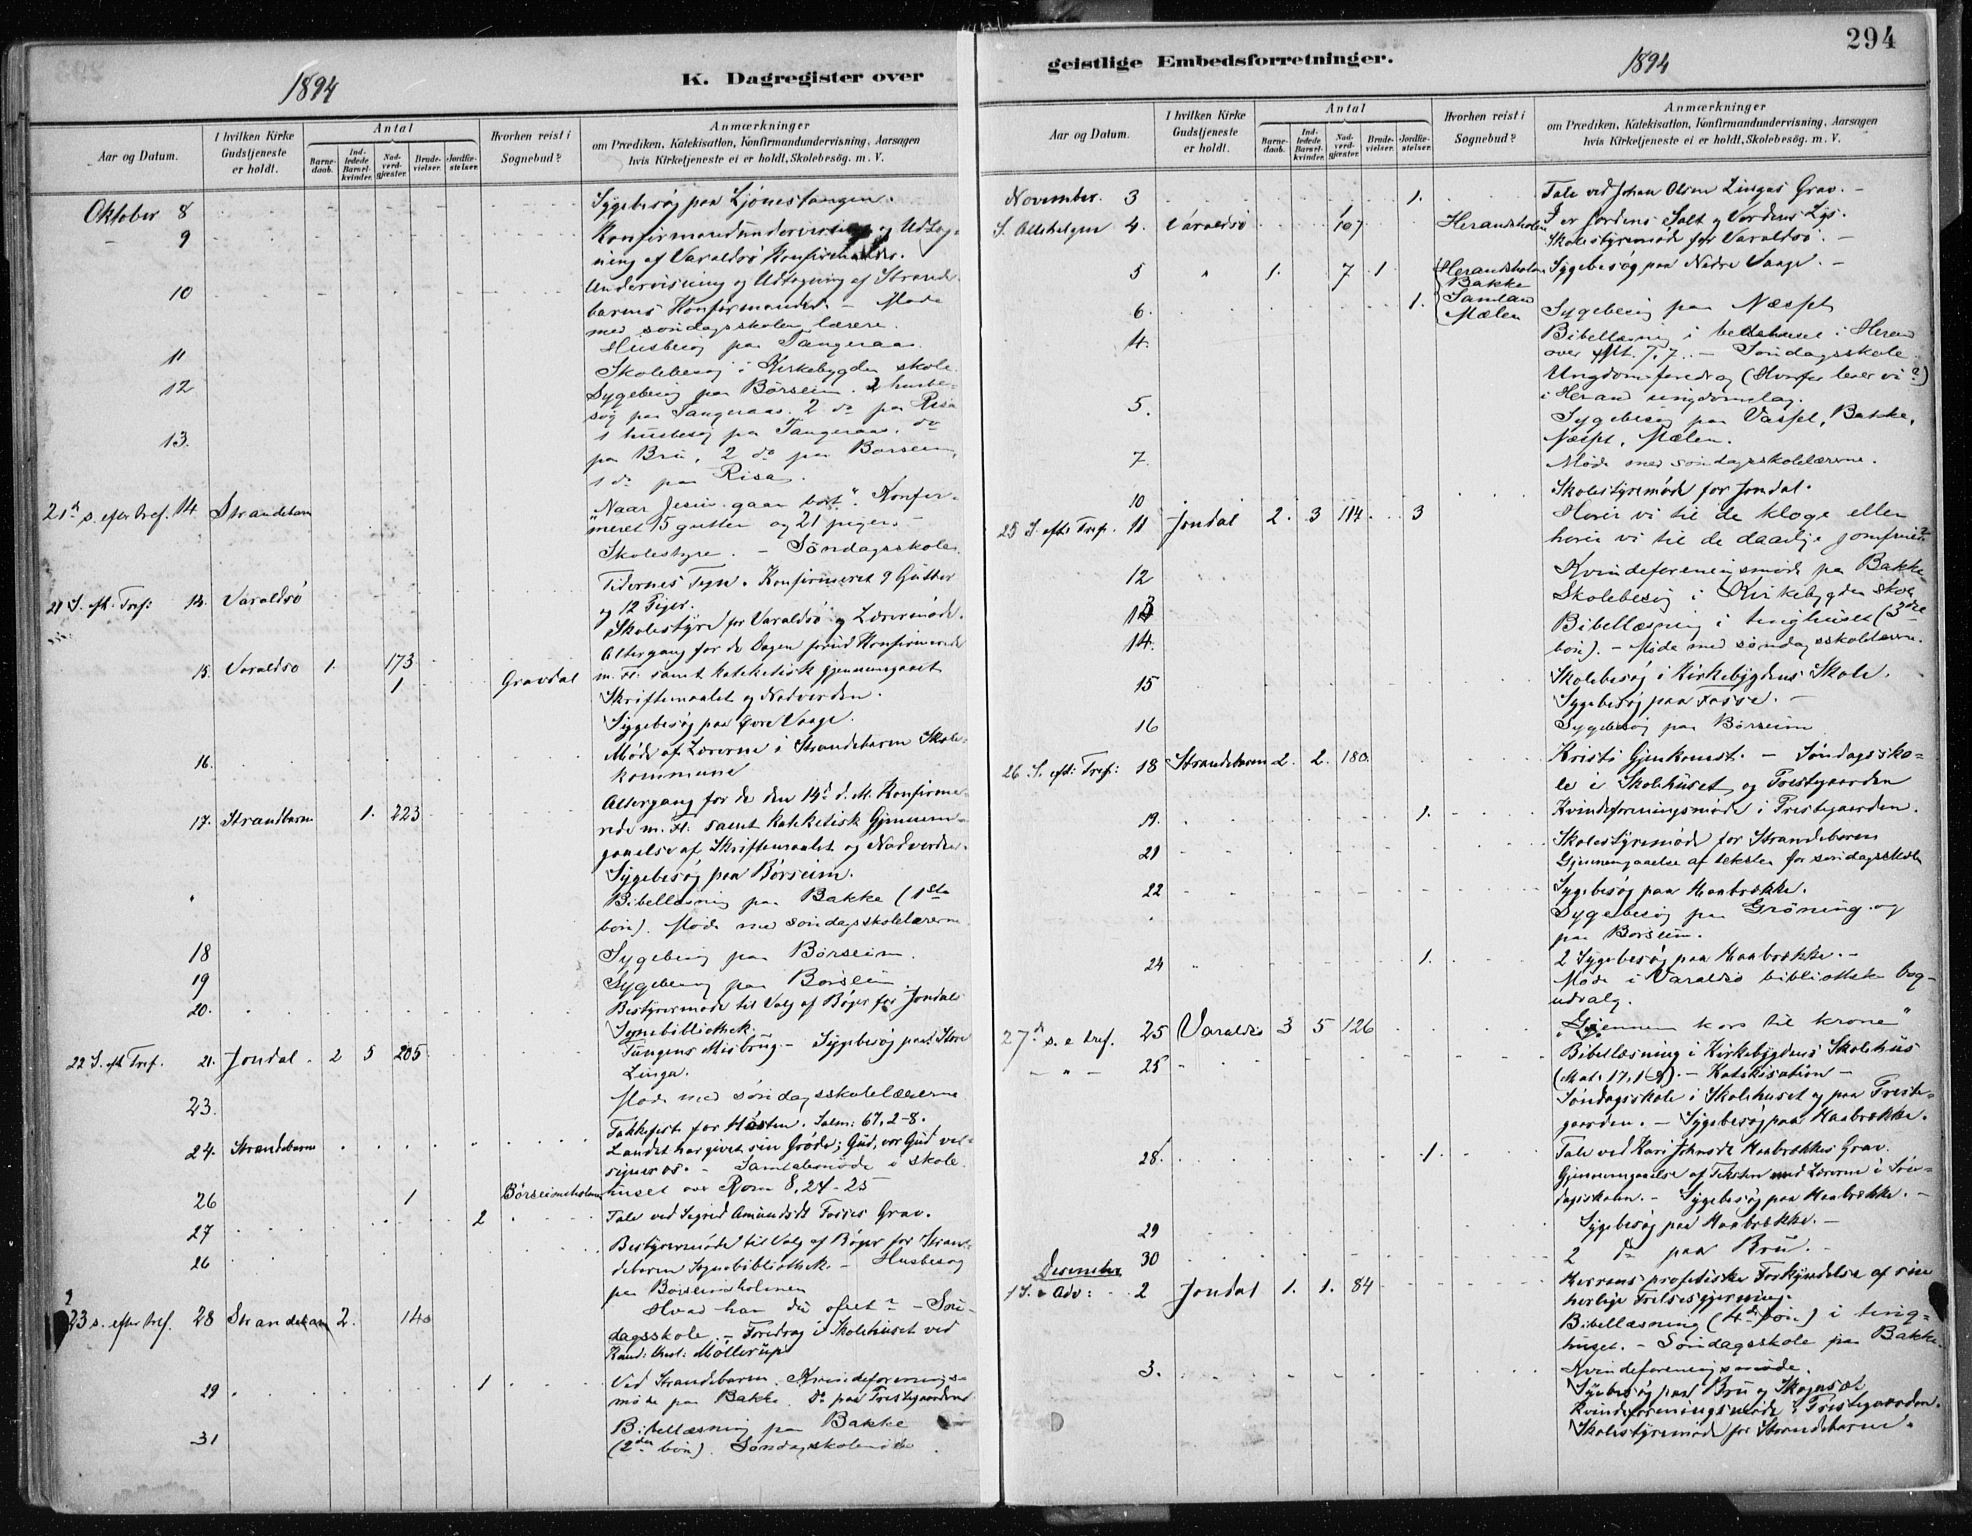 294
1894
K. Dagregister over
Aar og Datum.
I hvilken Kirke Gudstjeneste er holdt.
Antal
Barnedaab.
Indledede Barselkvinder.
Nadverdgjæster.
Brudevielser.
Jordfæstelser.
Hvorhen reist i Sognebud?
Anmærkninger
om Prædiken, Katekisation, Konfirmandundervisning, Aarsagen
hvis Kirketjeneste ei er holdt, Skolebesøg. m. V.
Oktober 8 Sygebesøg paa Ljonestangen.
9 Konfirmandundervisning og Udtag-
ning af Varaldsø Konfirmander.
10 Undervisning og Udtagning af Strande-
barms Konfirmander. - Møde
med søndagsskolens lærere.
Husbesøg paa Tangeraas.
11 Skolebesøg i Kirkebygden skole.
12 Sygebesøg paa Børseim. 2 husbe-
søg paa Tangeraas. 2 do paa Risa
13. 1 husbesøg paa Tangeraas. do
paa Bru, 2 do paa Børseim,
1 do paa Risa.
21de s. efter tref. 14 Strandebarm "Naar Jesus gaar bort." Konfir-
meret 15 gutter og 21 piger. -
Skolestyre. - Søndagsskole.
21 S. eft. Tref: Varaldsø Tidernes Tegn. Konfirmeret 9 Gutter
og 12 Piger.
Skolestyre for Varaldsø og Lærermøde.
15. Varaldsø 1. 173 Altergang for de Dagen forud Konfirmerede
1 Gravdal m. Fl. samt katekitisk gjennemgaaet
Skriftemaalet og Nadverden.
Sygebesøg paa øvre Vaage.
16. Møde af Lærerne i Strandebarm Skole-
kommune
17. Strandbarm 1. 223 Altergang for de den 14de d. M. Konfirme-
rede m. Fl. samt katekitisk Gjennem-
gaaelse af Skriftemaalet og Nadverden.
Sygebesøg paa Børseim.
" Bibellæsning paa Bakke (1ste
bøn). Møde med søndagsskolelærerne
18 Sygebesøg paa Børseim.
19 Sygebesøg paa Børseim
20. Bestyrermøde til Valg af Bøger for Jondals
Sognebibliothek.
22 S. eft Tref. 21. Jondal 2 5 205 Tungens Misbrug - Sygebesøg paa Store
Linga.
23. Møde med søndagsskolelærerne
24. Strandebarm Takkefest for Høsten. Salm: 67, 2-8.
Landet har givet sin Grøde; Gud, vor Gud vel-
signer os. - Samtalemøde i skole-
26 1 Børseimsholmen huset over Rom 8, 24-25
27 2 Tale ved Sigrid Amundsdt Fosses Grav.
26 Bestyrermøde til Valg af Bøger for Stran-
debarm Sognebibliothek. - Husbesøg
paa Børseimsholmen
23 s. efter tref. 28 Strandebarm 2. 140 Hvad har du ofret? - Søn-
dagsskole. - Foredrag i Skolehuset ved
Kand: theol: Møllerup
29 1 Ved Strandebarm. Kvindeforenings-
møde paa Bakke. Do paa Prestegaarden
31 Bibellæsning paa Bakke
(2den bøn). Søndagsskolemøde.
geistlige Embedsforretninger.
1894
Aar og Datum.
I hvilken Kirke Gudstjeneste er holdt.
Antal
Barnedaab.
Indledede Barselkvinder.
Nadverdgjæster.
Brudevielser.
Jordfæstelser.
Hvorhen reist i Sognebud?
Anmærkninger
om Prædiken, Katekisation, Konfirmandundervisning, Aarsagen
hvis Kirketjeneste ei er holdt, Skolebesøg. m. V.
November. 3 1. Tale ved Johan Olsen Lingas Grav. -
S. Allehelgen 4. Varaldsø 107 Herandsholmen I er Jordens Salt og Verdens Lys.
Skolestyremøde for Varaldsø. -
5 " 1. 7 1 Herandsholmen Sygebesøg paa Nedre Vaage. -
Bakke
6. 1. Samland Sygebesøg paa Næsset
Mælen
4. Bibellæsning i bedehuset i Herand
over Mt. 7, 7. - Søndagsskole.
Ungdomsforedrag (Hvorfor lever vi?)
i Herand ungdomslag.
5. Sygebesøg paa Vasset, Bakke,
Næsset, Mælen.
7. Møde med søndagsskolelærerne.
10 Skolestyremøde for Jondal.
25 S. efter Tref. 11 Jondal 2. 3 114. 3 Hører vi til de kloge eller
hører vi til de daarlige jomfruer?
12 Kvindeforeningsmøde paa Bakke
13 Skolebesøg i Kirkebygden skole
14. Bibellæsning i tinghuset (3dje
bøn). - Møde med søndagsskolelærerne.
15 Skolebesøg i Kirkebygdens Skole.
Sygebesøg paa Fosse. -
16 Sygebesøg paa Børseim
26 S. eft: Tref: 18 Strandebarm 2. 2. 180. Kristi Gjenkomst. - Søndagssko-
le i Skolehuset og Prestegaarden
19. 1. Kvindeforeningsmøde i Prestegaarden.
Skolestyremøde for Strandebarm
21 Gjennemgaaelse af teksten for søndagsskolen
22 Sygebesøg paa Haabrække.
Sygebesøg paa Grøning og
paa Børseim.
24 1. 2 Sygebesøg paa Haabrække. -
Møde i Varaldsø bibliotheks bog-
udvalg.
27de s. e tref. 25 Varaldsø 3 5 126 "Gjennem kors til krone"
- " - 25 Bibellæsning i Kirkebygdens Skolehus
(Mat. 17, 1-8). - Katekisation -
Søndagsskole i Skolehuset og paa Preste-
gaarden. - Sygebesøg paa Haabrække.
28. 1 Tale ved Kari Johnsdt Haabrækkes Grav.
Gjennemgaaelse af Teksten med Lærerne i Søn-
dagsskolen. - Sygebesøg paa Haabrække. -
29 Sygebesøg paa Haabrække. -
30 2 do paa Bru. -
Desember
1 S. i Adv: 2 Jondal 1. 1. 84 Herrens profetiske Forkyndelse af sin
herlige Frelsesgjerning.
Bibellæsning (4de bøn) i ting-
huset. - Søndagsskole paa Bakke.
3. Kvindeforeningsmøde.
Sygebesøg paa Bru og Skogsæt.
Kvindeforeningsmøde i Prestegaarden.
Skolestyremøde for Strandebarm.